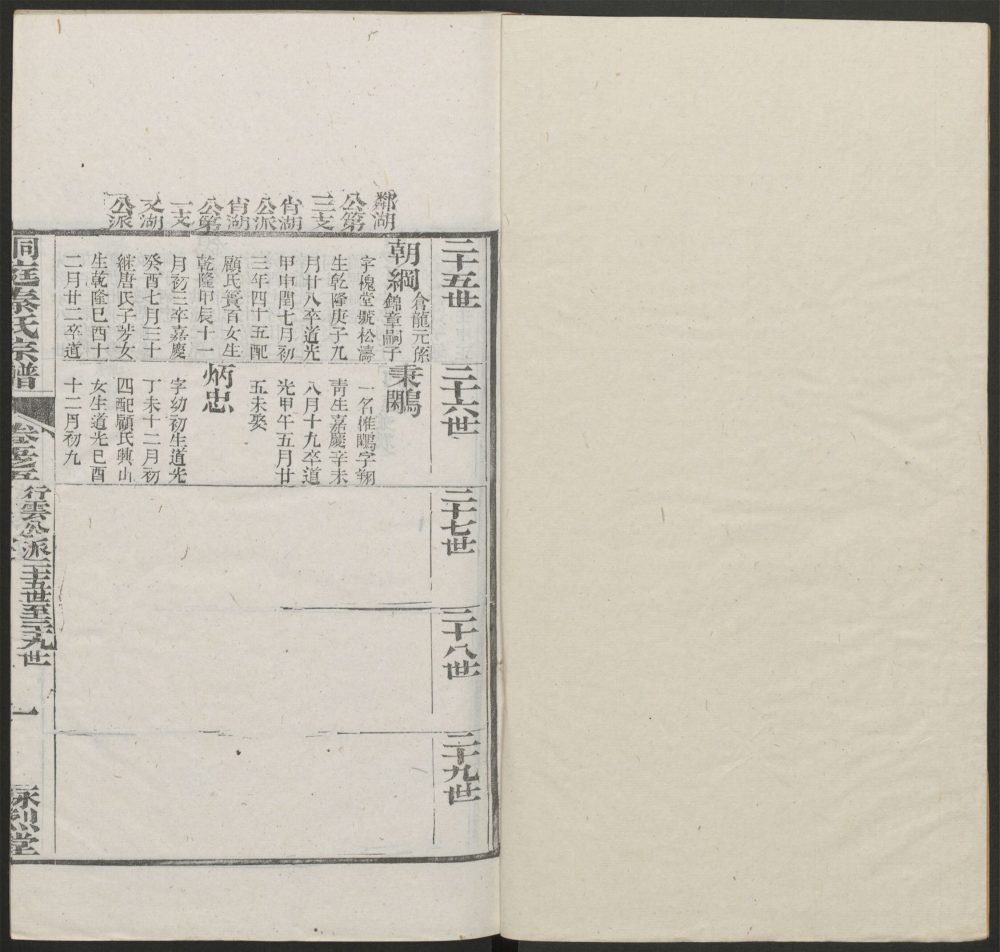 鄰湖
公第
三支
肖湖
公派
肖湖
公第
一支
文湖
公派
二十五世
朝綱
倉龍元孫
錦章嗣子
字槐堂號松濤
生乾隆庚子九
月廿八卒道光
甲申閏七月初
三年四十五配
顧氏賓百女生
乾隆甲辰十一
月初三卒嘉慶
癸酉七月三十
繼唐氏子芳女
生乾隆巳酉十
二月廿二卒道
二十六世
秉鵰
一名椎鵰字翔
青生嘉慶辛未
八月十九卒道
光甲午五月廿
五未娶
炳忠
字幼初生道光
丁未十二月初
四配顧氏興山
女生道光巳酉
十二月初九
二十七世
二十八世
二十九世
洞庭秦氏宗譜
行雲公派二十五世至二十九世
一
詠烈堂